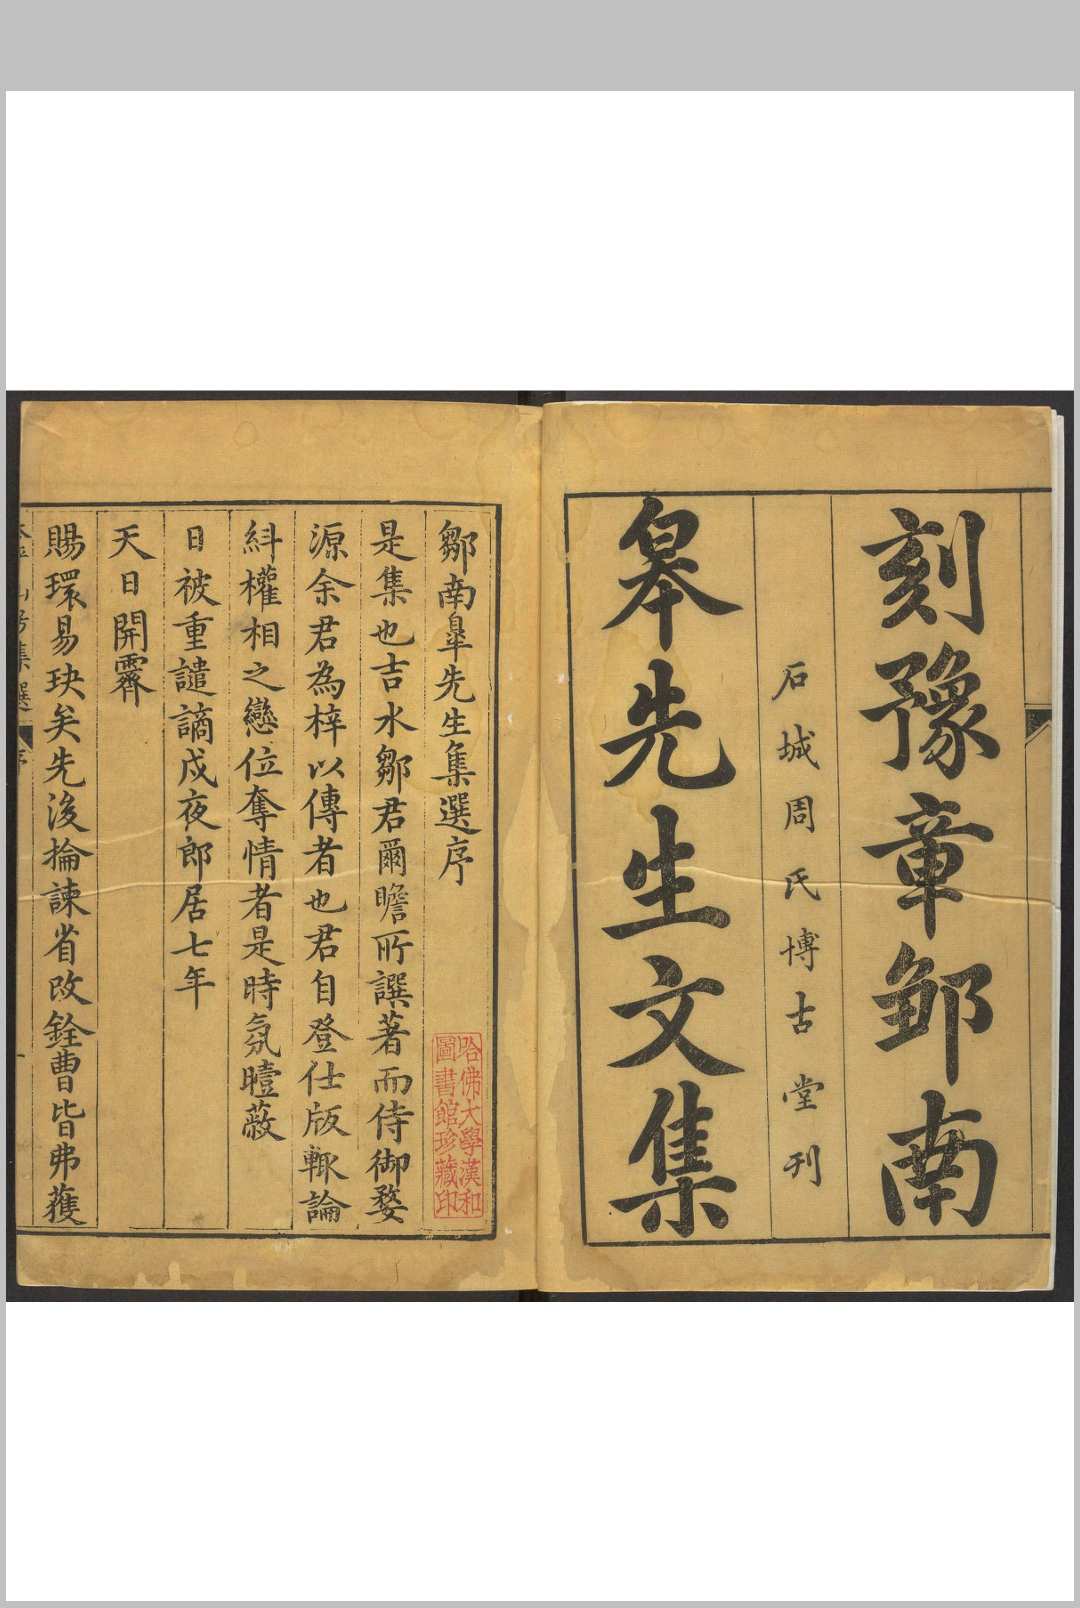 刻豫章邹南
石城周氏博古堂刊
皋先生文集
鄒南皐先生集選序
哈佛大學漢和
圖書館珍藏印
是集也吉水鄒君爾瞻所譔著而侍御婺
源余君為梓以傳者也君自登仕版輙論
糾權相之戀位奪情者是時氛曀蔽
日被重譴謫戍夜郎居七年
天日開霽
賜環易玦矣先後掄諫省改銓曹皆弗獲
集選
序